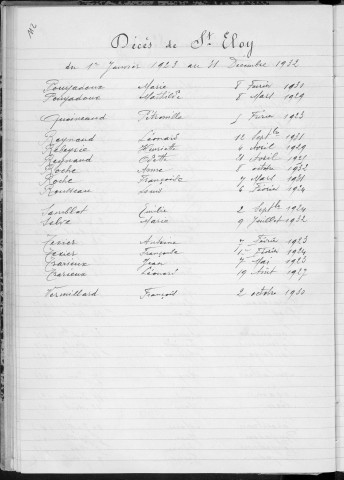 102
Décès de St Eloy
du 1er Janvier 1923 au 31 Décembre 1932
Pouyadoux Marie 8 Février 1931
Pouyadoux Mathilde 8 Mars 1929
Pétronille 5 Févrie 1923
Raynaud Léonard 12 Septbre 1931
Henriette 4 Avril 1929
Raynaud Odette 21 Avril 1921
Roche Anne 8 octobre 1932
Roche Françoise 7 Mars 1931
Rouveau Louis 6 Février 1924
Emilie 2 Septbre 1924
Marie 9 Juillet 1932
Texier Antoine 7 Février 1923
Texier Françoise 1er Février 1924
Jean 7 Mai 1923
Léonard 19 Août 1927
Vermillard François 2 octobre 1930